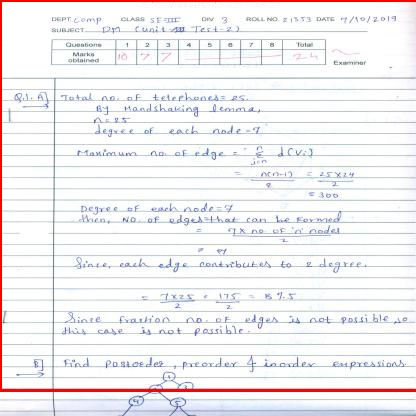 DEPT Comp CLASS SE-III DIV 3 ROLL NO. 21353 DATE 7/10/2019
SUBJECT Dm (Unit-III Test-2)
Questions 1 2 3 4 5 6 7 8 Total
Marks obtained 10 7 7 24
Examiner
Q.1. A] Total no. of telephones = 25.
By Handshaking lemma,
n = 25
degree of each node = 7
Maximum no. of edge = n Σ i=1 d(Vi)
= n(n-1) / 2 = 25×24 / 2
= 300
Degree of each node = 7
then, NO. of edges that can be formed
= 7 × no. of 'n' nodes / 2
=
Since, each edge contributes to 2 degree.
= 7×25 / 2 = 175 / 2 = 87.5
Since fraction no. of edges is not possible, so
this case is not possible.
B] Find postorder, preorder & inorder expressions
1
2 3
4 5